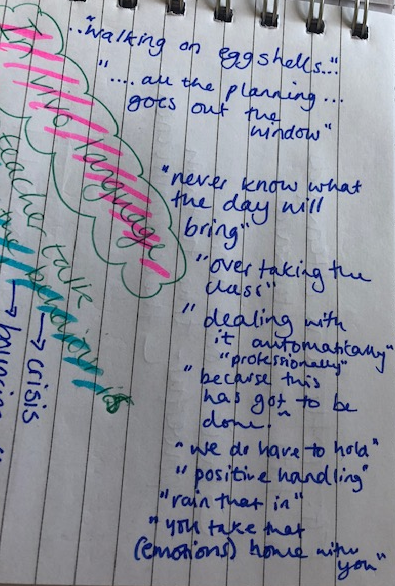 ..."walking on eggshells..."
".... all the planning...
goes out the
window"
"never know what
the day will
bring"
"over taking the
class"
"dealing with
it automatically"
"professionally"
"because this
has got to be
done."
"we do have to hold"
"positive handling"
"rain that in"
"you take that
(emotions) home with
you"
In vivo language
teacher talk
behaviour is
→ crisis